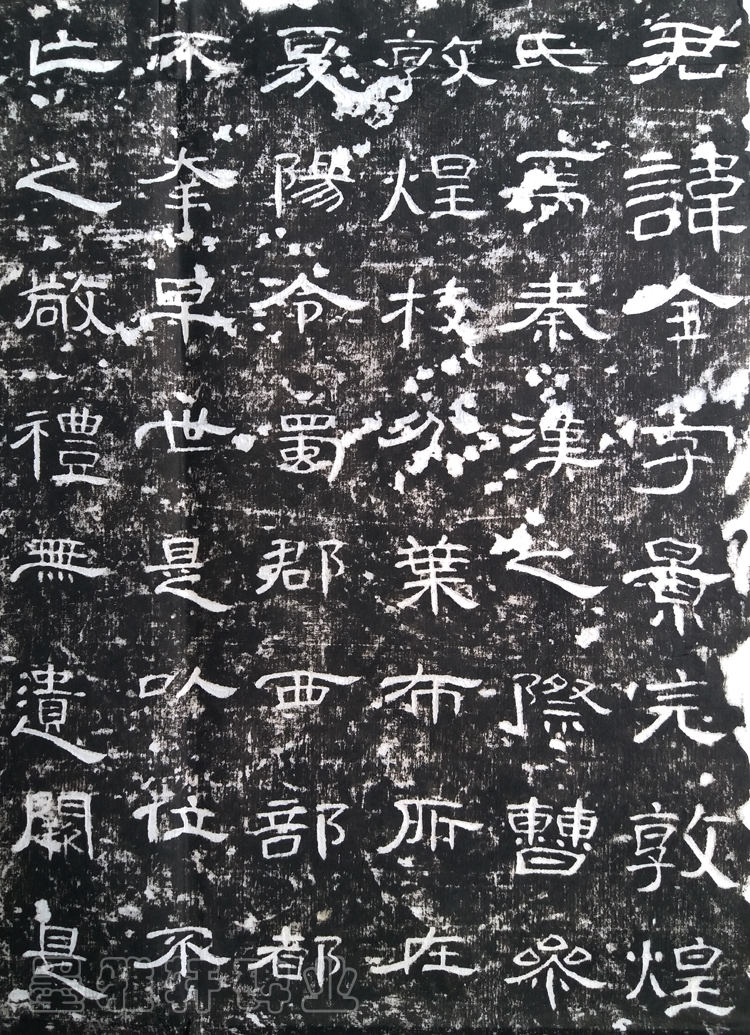 君諱全字景完敦煌
氏焉秦漢之際曹參
敦煌枝分葉布所在
夏陽令蜀郡西部都
不幸早世是以位不
亡之敬禮無遺闕是
墨雅轩碑业